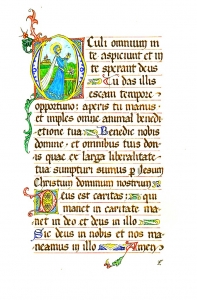 Oculi omnium in
te aspiciunt et in
te sperant deus
Tu das illis
escam tempore
opportuno: aperis tu manus
et imples omne animal benedi
ctione tua Benedic nobis
domine et omnibus tuis don
is quae ex larga liberalitate
tua sumpturi sumus p Jesum
Christum dominum nostrum
Deus est caritas: qui
manet in caritate ma
net in deo et deus in illo
Sic deus in nobis et nos ma
neamus in illo Amen